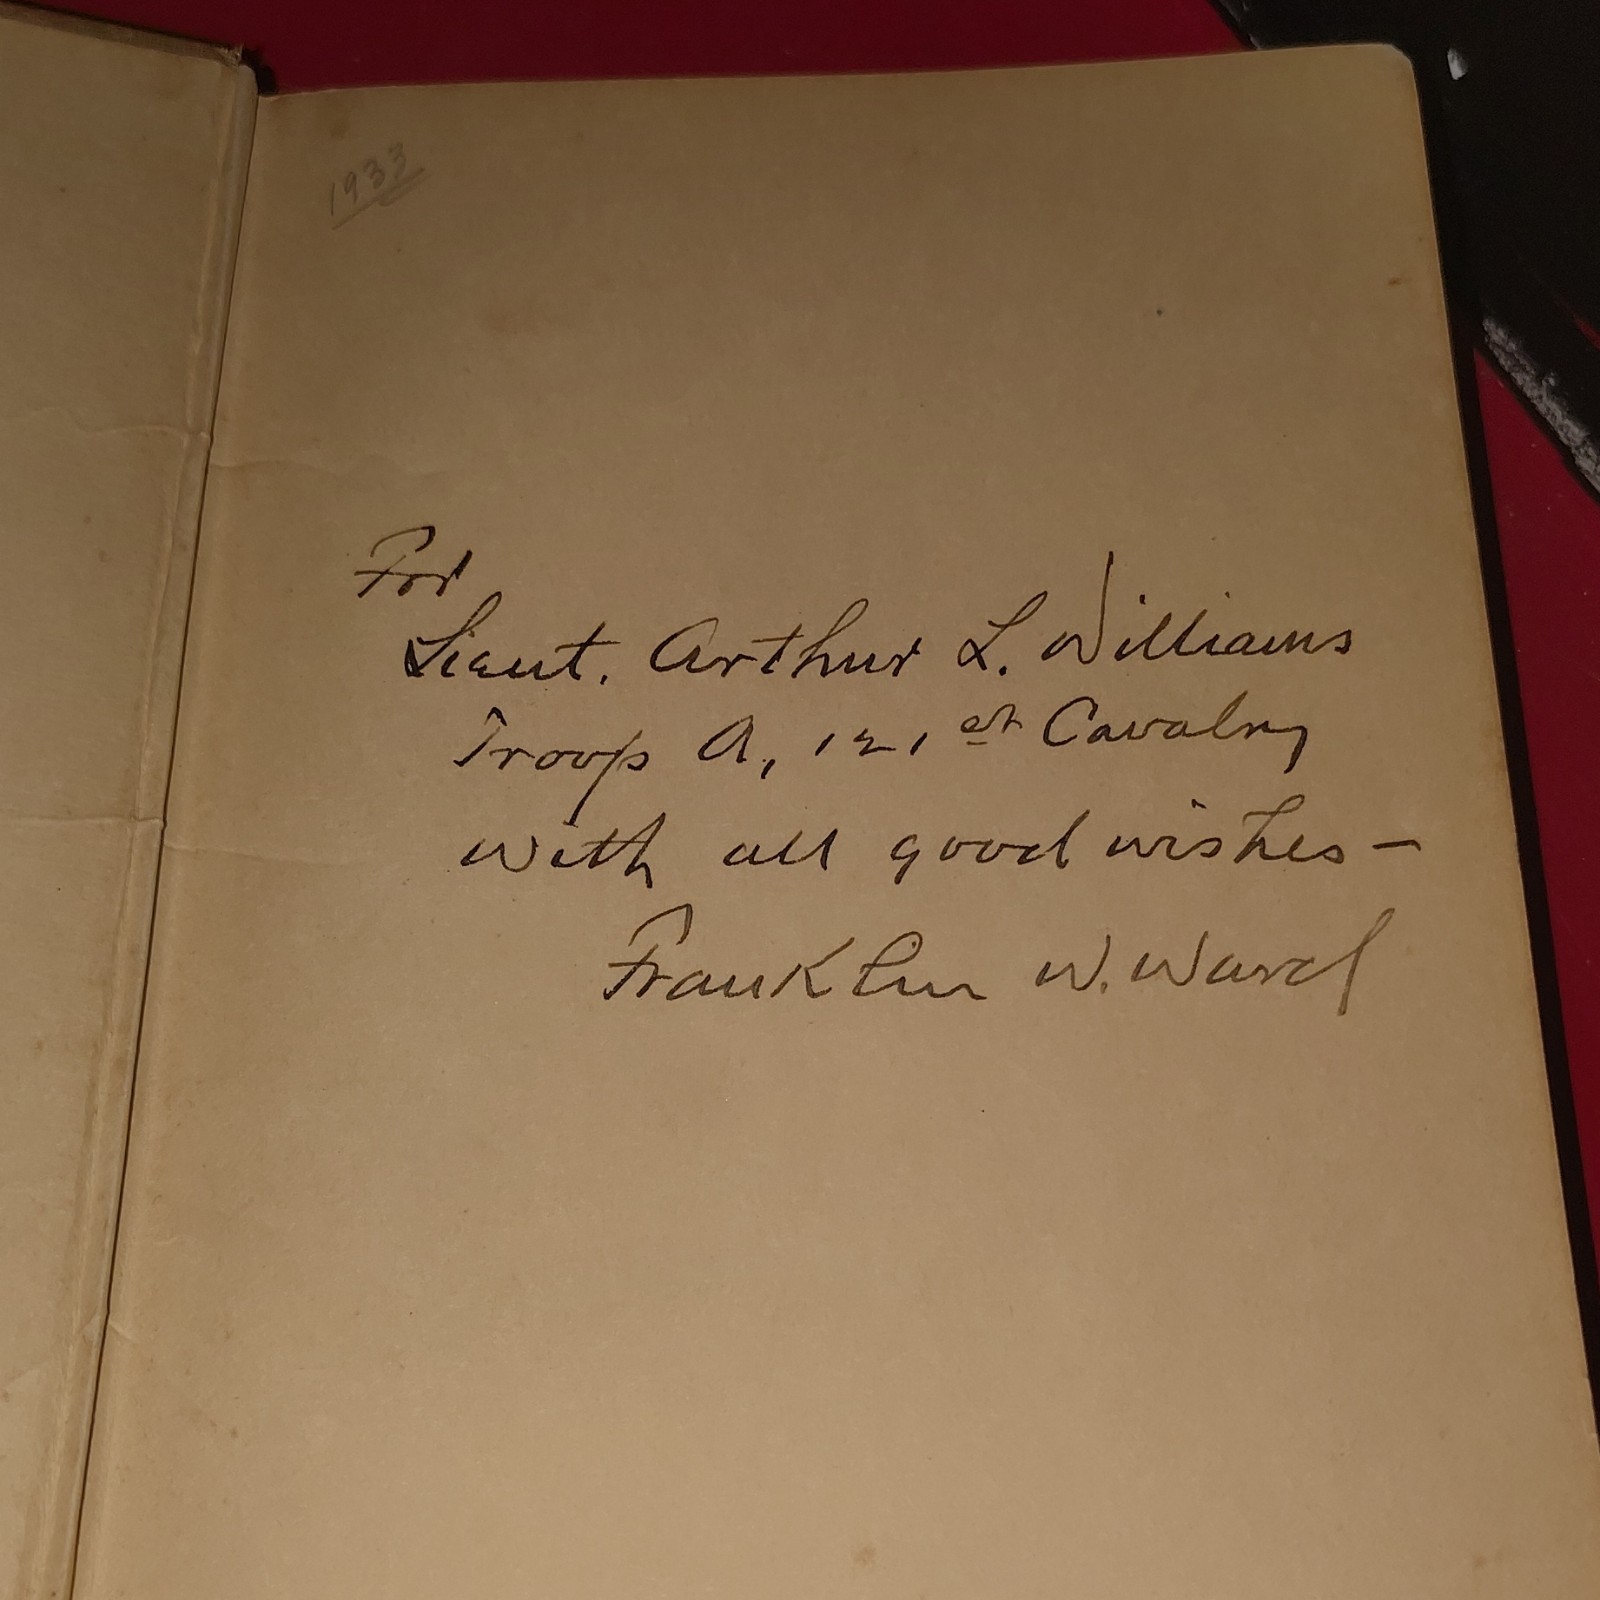 1933
For
Lieut. Arthur L. Williams
Troop A, 121st Cavalry
with all good wishes —
Franklin W. Ward